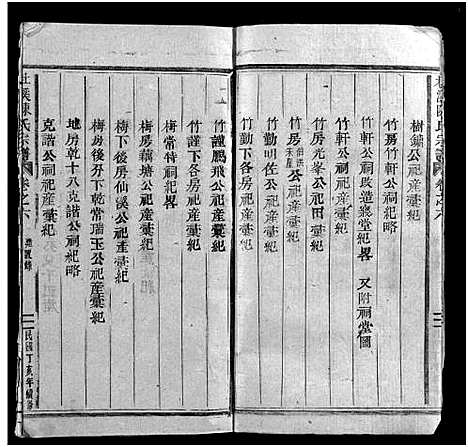 陳氏宗譜 卷之六
樹鏞公祠祀產彙紀
竹軒公祠改造寢堂紀畧 又附祠堂圖
竹軒公祠祀產彙紀
竹房光峯公祀田彙紀
竹勤明佐公祀產彙紀
竹勤下各房祀產彙紀
竹謹鵬飛公祀產彙紀
竹謹下各房祀產彙紀
梅常特祠祀畧
梅房藕塘公祀產彙紀
梅下後房仙溪公祀產彙紀
梅房後分下乾常瑞玉公祀產彙紀
地房乾十八克諧公祠紀略
克諧公祠祀產彙紀
杜溪陳氏宗譜 卷之六 民國丁亥年續修